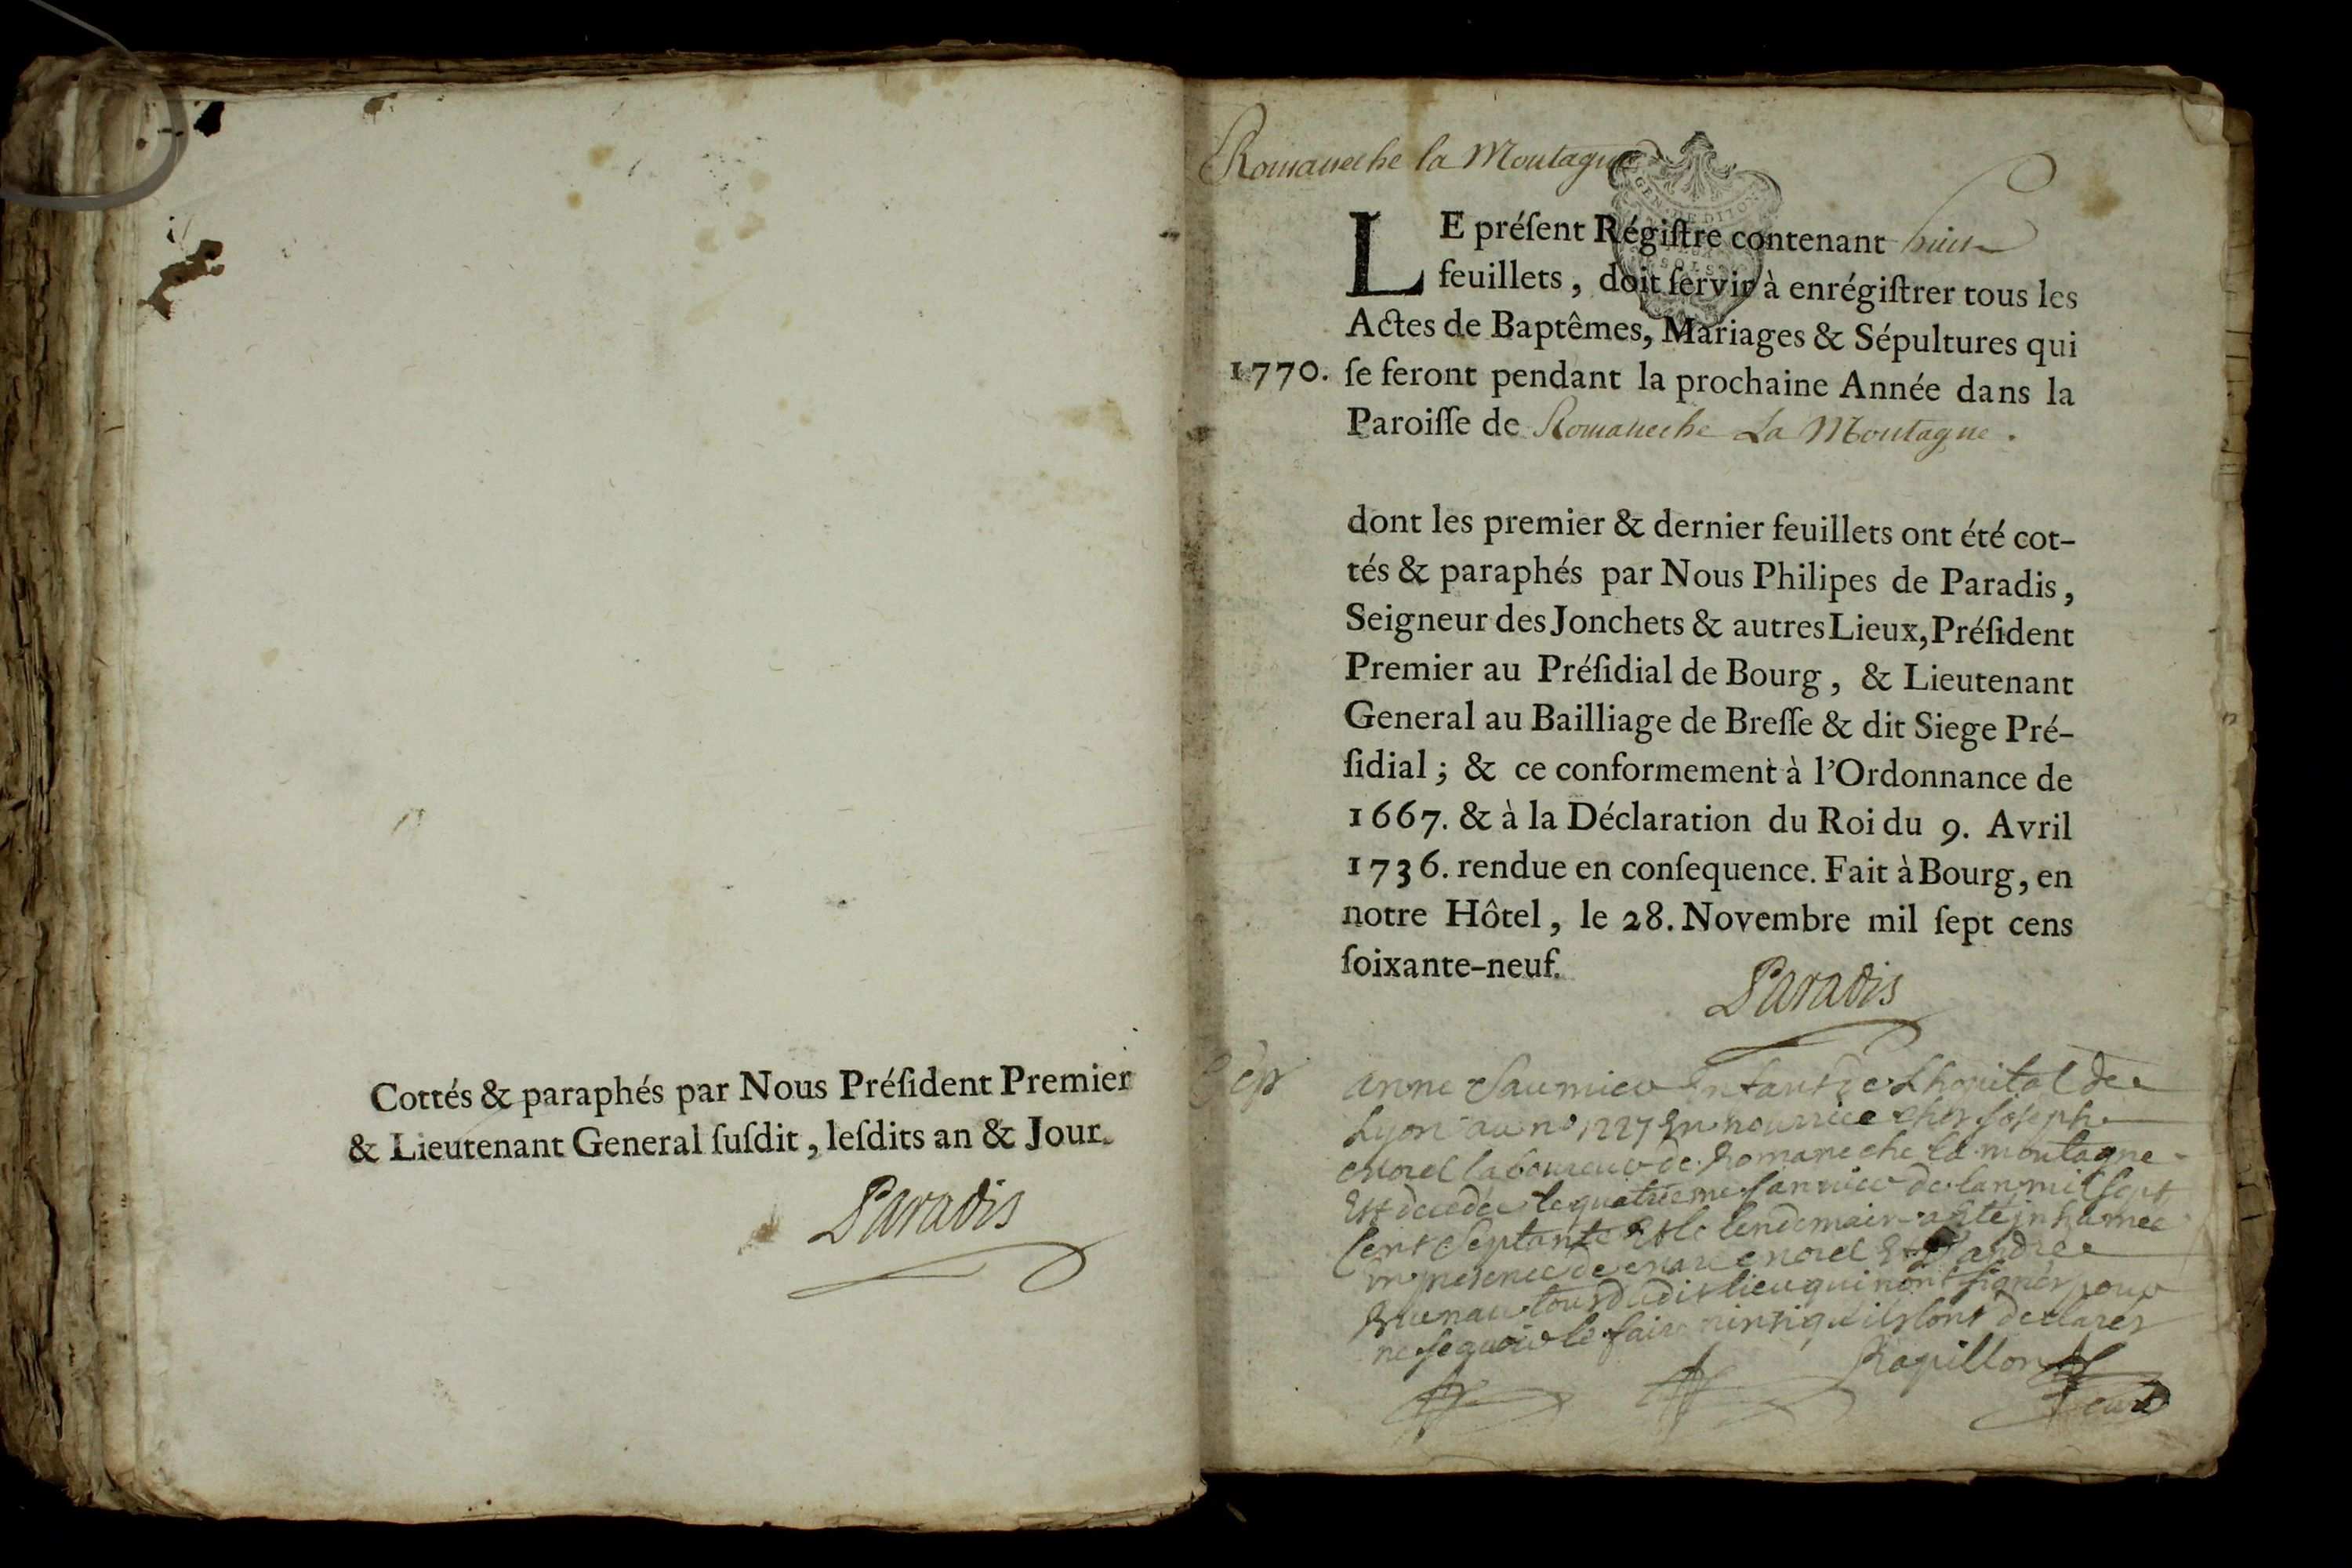 Cottés & paraphés par Nous Préſident Premier
& Lieutenant General ſuſdit, leſdits an & Jour.
Paradis
Romaneche la Montagne
LE préſent Régiſtre contenant huit
feuillets, doit ſervir à enrégiſtrer tous les
Actes de Baptêmes, Mariages & Sépultures qui
1770. ſe feront pendant la prochaine Année dans la
Paroiſſe de Romaneche La Montagne.
dont les premier & dernier feuillets ont été cot-
tés & paraphés par Nous Philipes de Paradis,
Seigneur des Jonchets & autres Lieux, Préſident
Premier au Préſidial de Bourg, & Lieutenant
General au Bailliage de Breſſe & dit Siege Pré-
ſidial; & ce conformement à l'Ordonnance de
1667. & à la Déclaration du Roi du 9. Avril
1736. rendue en conſequence. Fait à Bourg, en
notre Hôtel, le 28. Novembre mil ſept cens
ſoixante-neuf.
Paradis
Sep
anne Saumier Enfant de Lhopital de
Lyon au no 1227 En nourrice ches Joseph
morel laboureur de Romaneche la montagne
Est decedée le quatrieme janvier de lan mil sept
cent septante Et le lendemain a Eté inhumée
en presence de morel Et andre
tous dudit lieu qui nont signés pour
ne sçavoir le faire ainsi quils lont declarés
Rapillon
curé